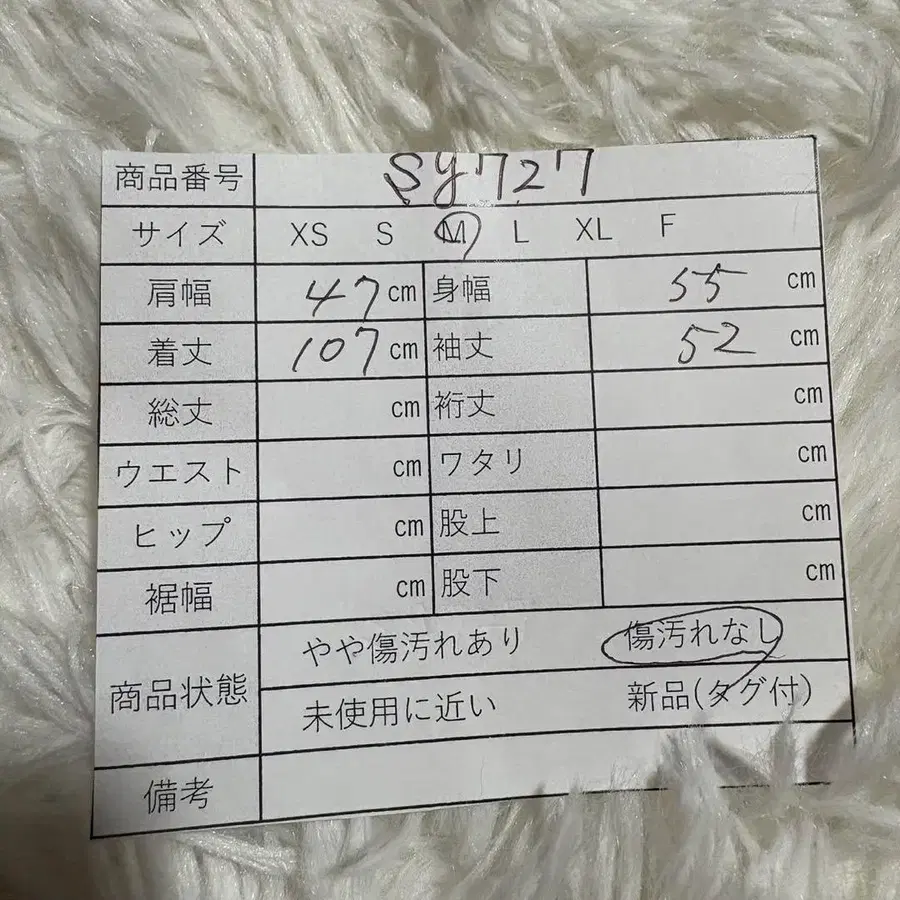 商品番号 SY727
サイズ XS S M L XL F
肩幅 47 cm 身幅 55 cm
着丈 107 cm 袖丈 52 cm
総丈 cm 裄丈 cm
ウエスト cm ワタリ cm
ヒップ cm 股上 cm
裾幅 cm 股下 cm
商品状態 やや傷汚れあり 傷汚れなし
未使用に近い 新品(タグ付)
備考